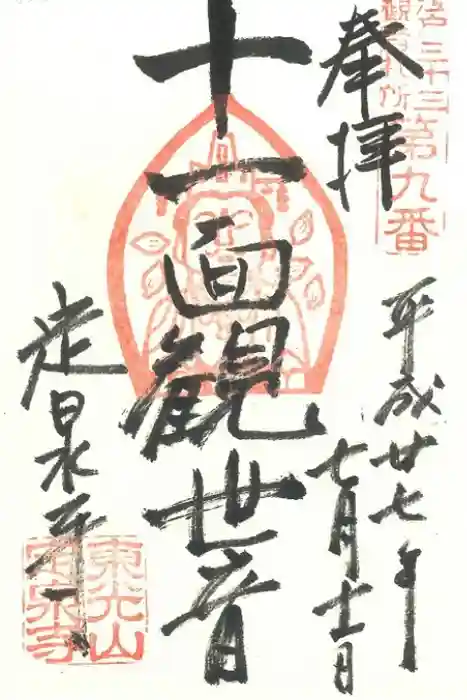 奉拝
江戸三十三
観音札所
第九番
十一面観世音
平成廿七年
七月十一日
定泉寺
東光山
定泉寺